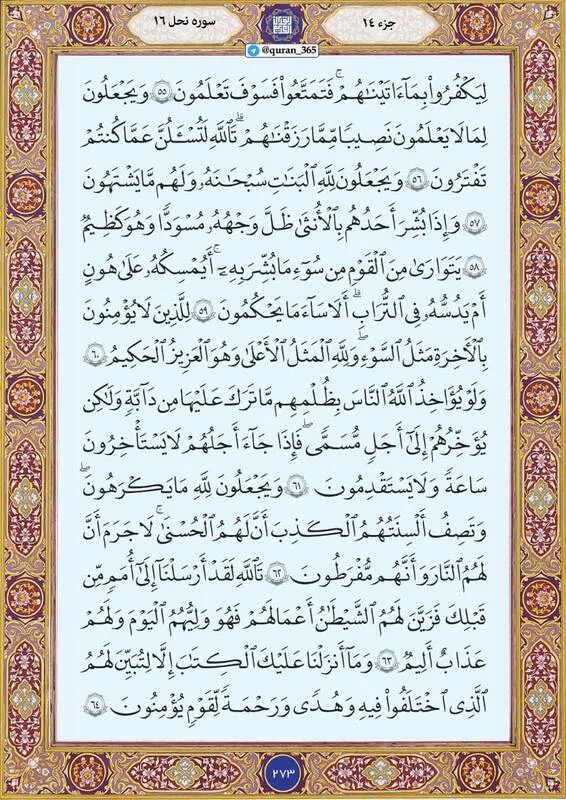 جزء ۱۴
سوره نحل ۱۶
@quran_365
لِيَكْفُرُوا۟ بِمَآ ءَاتَيْنَٰهُمْ ۚ فَتَمَتَّعُوا۟ فَسَوْفَ تَعْلَمُونَ ۵۵ وَيَجْعَلُونَ
لِمَا لَا يَعْلَمُونَ نَصِيبًا مِّمَّا رَزَقْنَٰهُمْ ۗ تَٱللَّهِ لَتُسْـَٔلُنَّ عَمَّا كُنتُمْ
تَفْتَرُونَ ۵۶ وَيَجْعَلُونَ لِلَّهِ ٱلْبَنَٰتِ سُبْحَٰنَهُۥ وَلَهُم مَّا يَشْتَهُونَ
۵۷ وَإِذَا بُشِّرَ أَحَدُهُم بِٱلْأُنثَىٰ ظَلَّ وَجْهُهُۥ مُسْوَدًّا وَهُوَ كَظِيمٌ
۵۸ يَتَوَٰرَىٰ مِنَ ٱلْقَوْمِ مِن سُوٓءِ مَا بُشِّرَ بِهِۦٓ ۚ أَيُمْسِكُهُۥ عَلَىٰ هُونٍ
أَمْ يَدُسُّهُۥ فِى ٱلتُّرَابِ ۗ أَلَا سَآءَ مَا يَحْكُمُونَ ۵۹ لِلَّذِينَ لَا يُؤْمِنُونَ
بِٱلْأَخِرَةِ مَثَلُ ٱلسَّوْءِ ۖ وَلِلَّهِ ٱلْمَثَلُ ٱلْأَعْلَىٰ وَهُوَ ٱلْعَزِيزُ ٱلْحَكِيمُ ۶۰
وَلَوْ يُؤَاخِذُ ٱللَّهُ ٱلنَّاسَ بِظُلْمِهِم مَّا تَرَكَ عَلَيْهَا مِن دَآبَّةٍ وَلَٰكِن
يُؤَخِّرُهُمْ إِلَىٰٓ أَجَلٍ مُّسَمًّى ۖ فَإِذَا جَآءَ أَجَلُهُمْ لَا يَسْتَـْٔخِرُونَ
سَاعَةً وَلَا يَسْتَقْدِمُونَ ۶۱ وَيَجْعَلُونَ لِلَّهِ مَا يَكْرَهُونَ ۖ
وَتَصِفُ أَلْسِنَتُهُمُ ٱلْكَذِبَ أَنَّ لَهُمُ ٱلْحُسْنَىٰ ۖ لَا جَرَمَ أَنَّ
لَهُمُ ٱلنَّارَ وَأَنَّهُم مُّفْرَطُونَ ۶۲ تَٱللَّهِ لَقَدْ أَرْسَلْنَآ إِلَىٰٓ أُمَمٍ مِّن
قَبْلِكَ فَزَيَّنَ لَهُمُ ٱلشَّيْطَٰنُ أَعْمَٰلَهُمْ فَهُوَ وَلِيُّهُمُ ٱلْيَوْمَ وَلَهُمْ
عَذَابٌ أَلِيمٌ ۶۳ وَمَآ أَنزَلْنَا عَلَيْكَ ٱلْكِتَٰبَ إِلَّا لِتُبَيِّنَ لَهُمُ
ٱلَّذِى ٱخْتَلَفُوا۟ فِيهِ وَهُدًى وَرَحْمَةً لِّقَوْمٍ يُؤْمِنُونَ ۶۴
۲۷۳